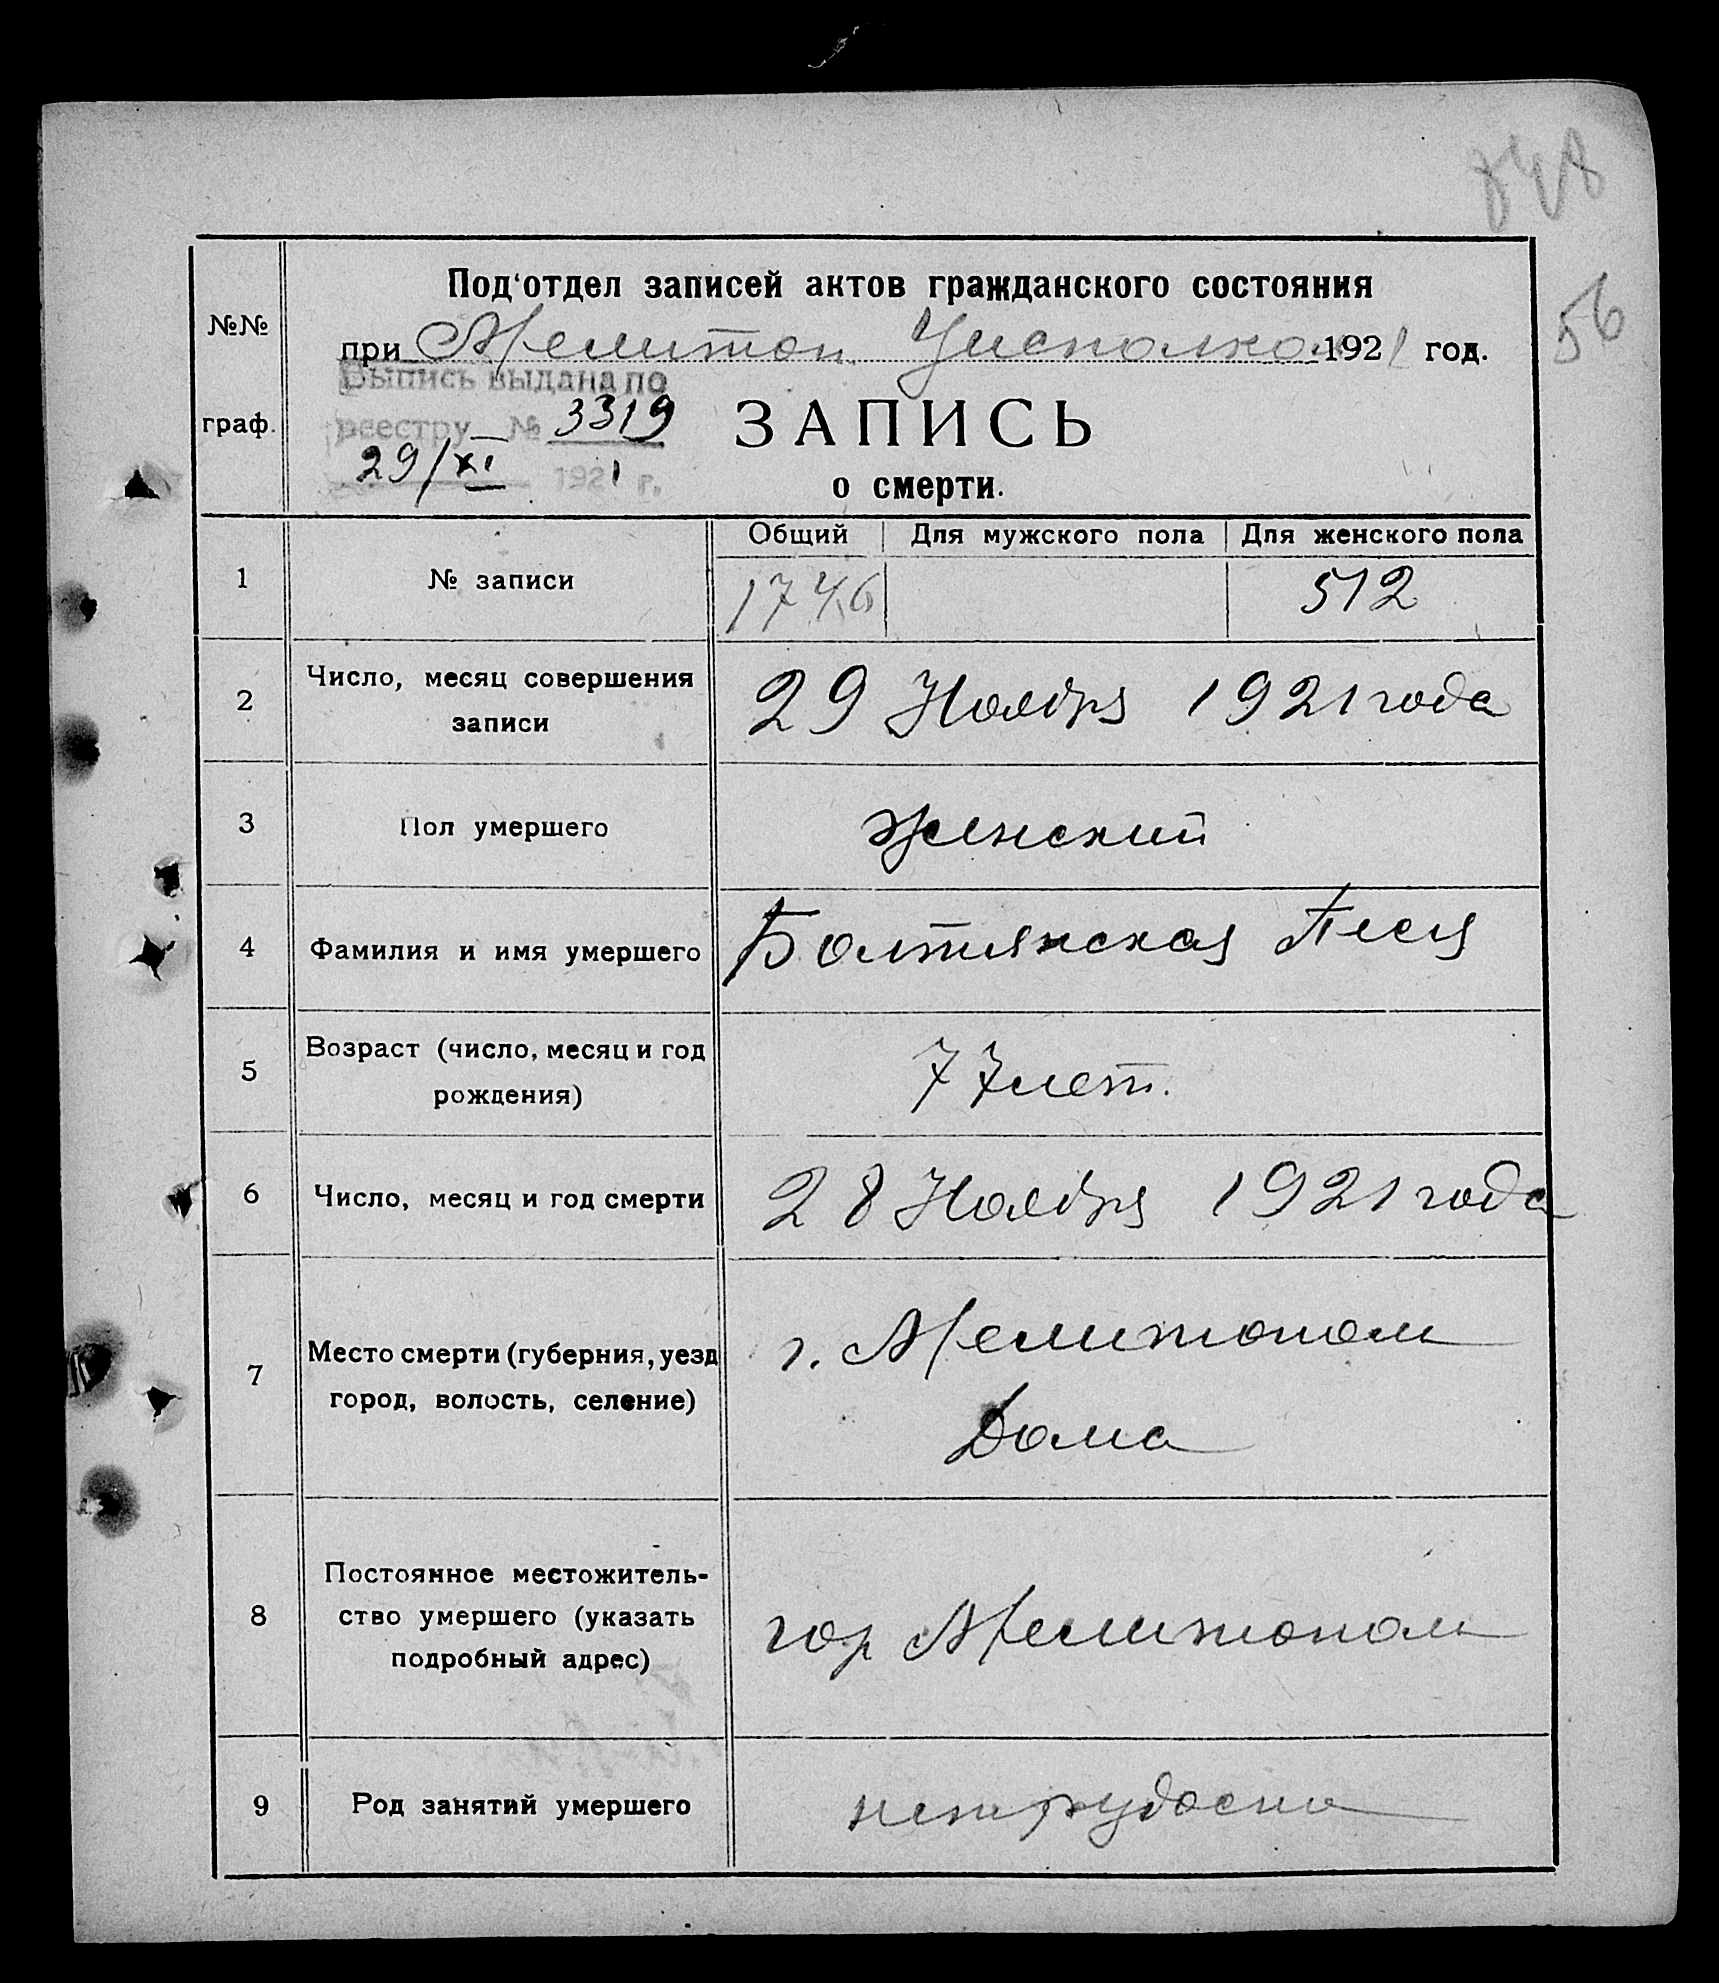 848
56
№№
граф.
Под'отдел записей актов гражданского состояния
при Мелитоп Уисполком 1921 год.
Выпись выдана по
реестру № 3319
29/XI 1921 г.
ЗАПИСЬ
о смерти.
Общий Для мужского пола Для женского пола
1 № записи 1746 512
2 Число, месяц совершения
записи
29 Ноября 1921 года
3 Пол умершего женский
4 Фамилия и имя умершего Болтянская Песя
5 Возраст (число, месяц и год
рождения)
77 лет.
6 Число, месяц и год смерти 28 Ноября 1921 года
7 Место смерти (губерния, уезд
город, волость, селение)
г. Мелитополь
Дома
8 Постоянное местожитель-
ство умершего (указать
подробный адрес)
гор Мелитополь
9 Род занятий умершего нетрудоспо